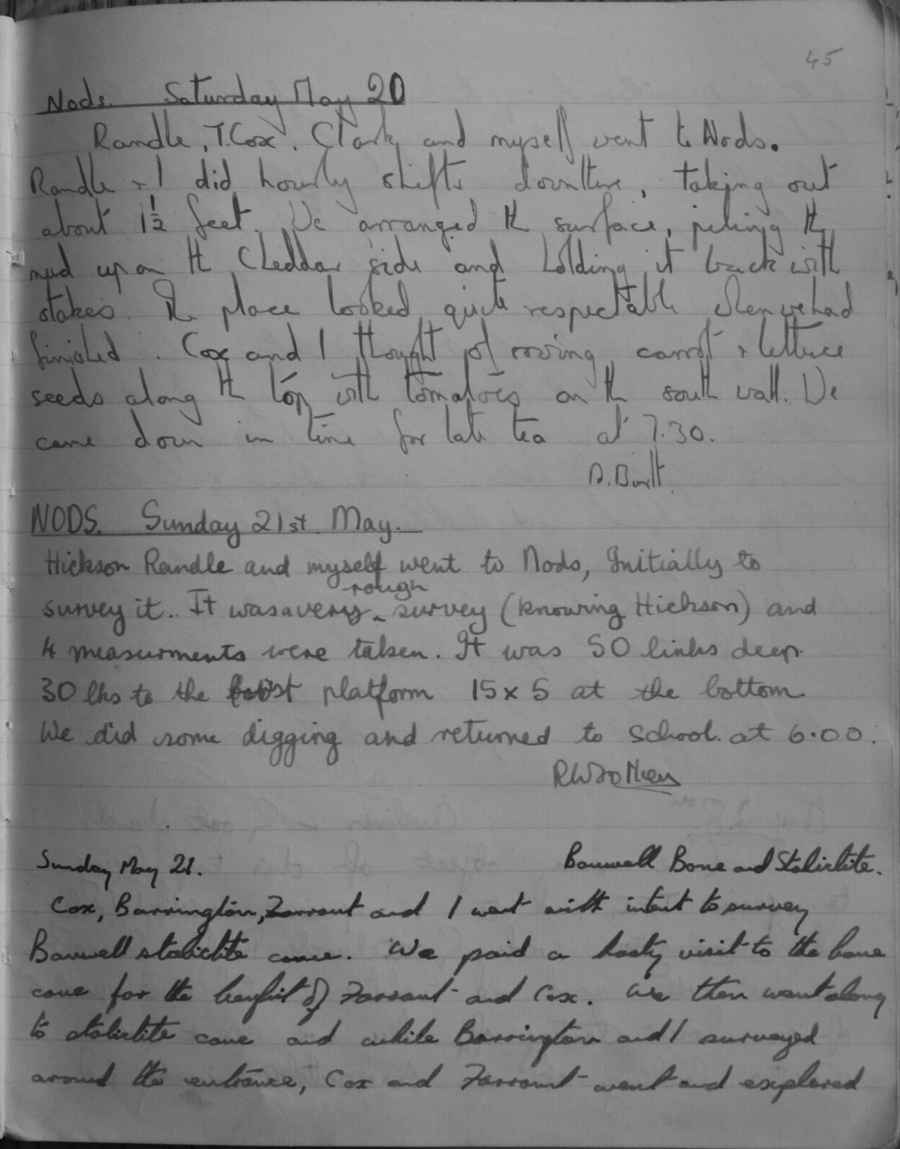 45
Nods. Saturday May 20
Randle, T. Cox, Clark and myself went to Nods.
Randle + I did hourly shifts downthere, taking out
about 1½ feet. We arranged the surface, piling the
mud up on the Cheddar side and holding it back with
stakes. The place looked quite respectable when we had
finished. Cox and I thought of sowing carrot + lettuce
seeds along the top with tomatoes on the south wall. We
came down in time for late tea at 7.30.
NODS. Sunday 21st May.
Hickson Randle and myself went to Nods, Initially to
rough
survey it.. It was a very ^ survey (knowing Hickson) and
4 measurments were taken. It was 50 links deep
30 lks to the platform 15 x 5 at the bottom
We did some digging and returned to School. at 6.00.
Sunday May 21. Banwell Bone and Stalictite.
Cox, Barrington, Farrant and I went with intent to survey
Banwell stalictite cave. We paid a hasty visit to the bone
cave for the benefit of Farrant and Cox. We then went along
to stalictite cave and while Barrington and I surveyed
around the entrance, Cox and Farrant went and explored